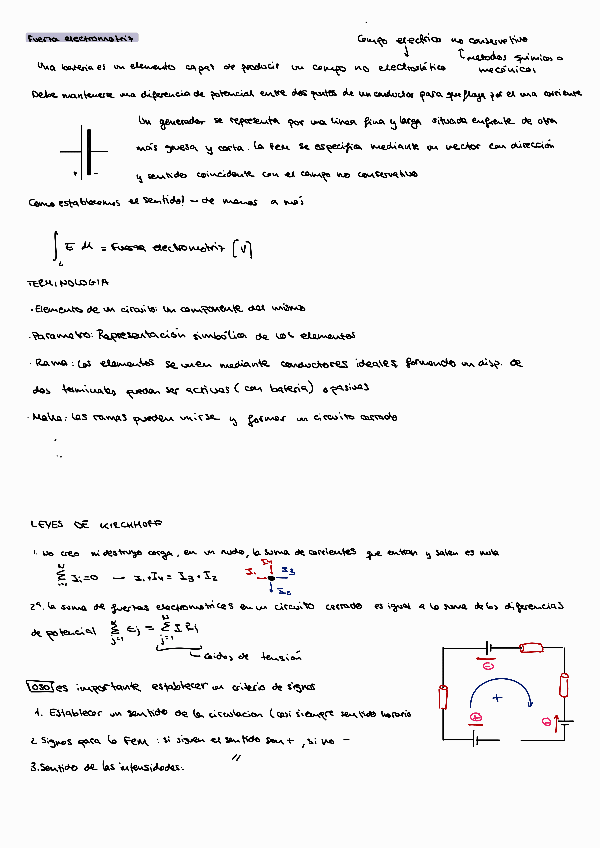 Fuerza electromotriz
Campo eléctrico no conservativo
métodos químicos o
mecánicos
Una batería es un elemento capaz de producir un campo no electrostático
Debe mantenerse una diferencia de potencial entre dos puntos de un conductor para que fluya por el una corriente
Un generador se representa por una línea fina y larga situada enfrente de otra
más gruesa y corta. La Fem se especifica mediante un vector con dirección
+ -
y sentido coincidente con el campo no conservativo
Como establecemos el sentido! - de menos a más
∫ E dl = Fuerza electromotriz [V]
L
TERMINOLOGIA
· Elemento de un circuito: Un componente del mismo
· Parametro: Representación simbólica de los elementos
· Rama: Los elementos se unen mediante conductores ideales formando un disp. de
dos terminales, puedan ser activas (con batería) o pasivas
· Malla: Las ramas pueden unirse y formar un circuito cerrado
LEYES DE KIRCHHOFF
1. No creo ni destruyo carga, en un nudo, la suma de corrientes que entran y salen es nula
Σ Ii = 0 — I1 + I4 = I3 + I2
I4
I1 I3
I2
2ª. la suma de fuerzas electromotrices en un circuito cerrado es igual a la suma de las diferencias
de potencial Σ Ej = Σ I Rj
j=1 j=1
Caidas de tensión
[OSO] es importante establecer un criterio de signos
1. Establecer un sentido de la circulacion (casi siempre sentido horario
2. Signos para la Fem: si siguen el sentido son +, si no -
3. Sentido de las intensidades. //
⊖
+
⊕ ⊖